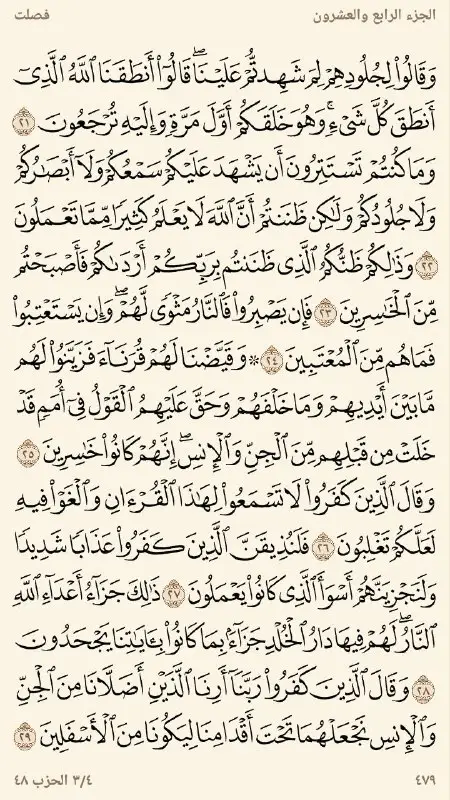 الجزء الرابع والعشرون فصلت
وَقَالُوا۟ لِجُلُودِهِمْ لِمَ شَهِدتُّمْ عَلَيْنَا ۖ قَالُوٓا۟ أَنطَقَنَا ٱللَّهُ ٱلَّذِىٓ
أَنطَقَ كُلَّ شَىْءٍ ۚ وَهُوَ خَلَقَكُمْ أَوَّلَ مَرَّةٍ وَإِلَيْهِ تُرْجَعُونَ ٢١
وَمَا كُنتُمْ تَسْتَتِرُونَ أَن يَشْهَدَ عَلَيْكُمْ سَمْعُكُمْ وَلَآ أَبْصَـٰرُكُمْ
وَلَا جُلُودُكُمْ وَلَـٰكِن ظَنَنتُمْ أَنَّ ٱللَّهَ لَا يَعْلَمُ كَثِيرًا مِّمَّا تَعْمَلُونَ
٢٢ وَذَٰلِكُمْ ظَنُّكُمُ ٱلَّذِى ظَنَنتُم بِرَبِّكُمْ أَرْدَىٰكُمْ فَأَصْبَحْتُم
مِّنَ ٱلْخَـٰسِرِينَ ٢٣ فَإِن يَصْبِرُوا۟ فَٱلنَّارُ مَثْوًى لَّهُمْ ۖ وَإِن يَسْتَعْتِبُوا۟
فَمَا هُم مِّنَ ٱلْمُعْتَبِينَ ٢٤ ۞ وَقَيَّضْنَا لَهُمْ قُرَنَآءَ فَزَيَّنُوا۟ لَهُم
مَّا بَيْنَ أَيْدِيهِمْ وَمَا خَلْفَهُمْ وَحَقَّ عَلَيْهِمُ ٱلْقَوْلُ فِىٓ أُمَمٍ قَدْ
خَلَتْ مِن قَبْلِهِم مِّنَ ٱلْجِنِّ وَٱلْإِنسِ ۖ إِنَّهُمْ كَانُوا۟ خَـٰسِرِينَ ٢٥
وَقَالَ ٱلَّذِينَ كَفَرُوا۟ لَا تَسْمَعُوا۟ لِهَـٰذَا ٱلْقُرْءَانِ وَٱلْغَوْا۟ فِيهِ
لَعَلَّكُمْ تَغْلِبُونَ ٢٦ فَلَنُذِيقَنَّ ٱلَّذِينَ كَفَرُوا۟ عَذَابًا شَدِيدًا
وَلَنَجْزِيَنَّهُمْ أَسْوَأَ ٱلَّذِى كَانُوا۟ يَعْمَلُونَ ٢٧ ذَٰلِكَ جَزَآءُ أَعْدَآءِ ٱللَّهِ
ٱلنَّارُ ۖ لَهُمْ فِيهَا دَارُ ٱلْخُلْدِ ۖ جَزَآءًۢ بِمَا كَانُوا۟ بِـَٔايَـٰتِنَا يَجْحَدُونَ
٢٨ وَقَالَ ٱلَّذِينَ كَفَرُوا۟ رَبَّنَآ أَرِنَا ٱلَّذَيْنِ أَضَلَّانَا مِنَ ٱلْجِنِّ
وَٱلْإِنسِ نَجْعَلْهُمَا تَحْتَ أَقْدَامِنَا لِيَكُونَا مِنَ ٱلْأَسْفَلِينَ ٢٩
٣/٤ الحزب ٤٨ ٤٧٩